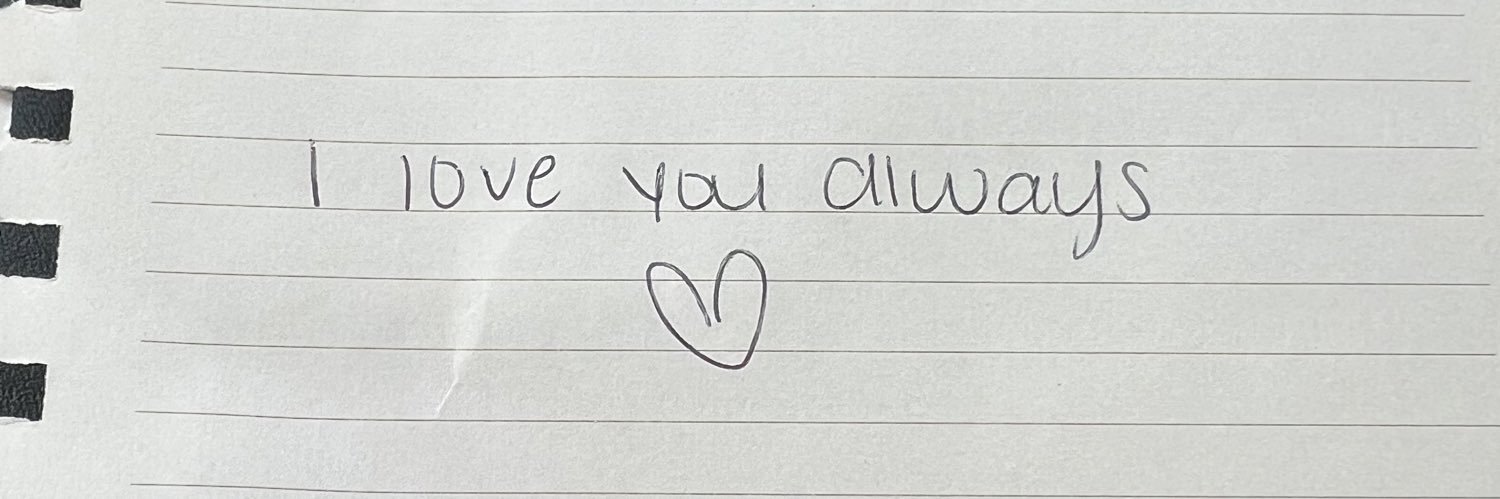 I love you always